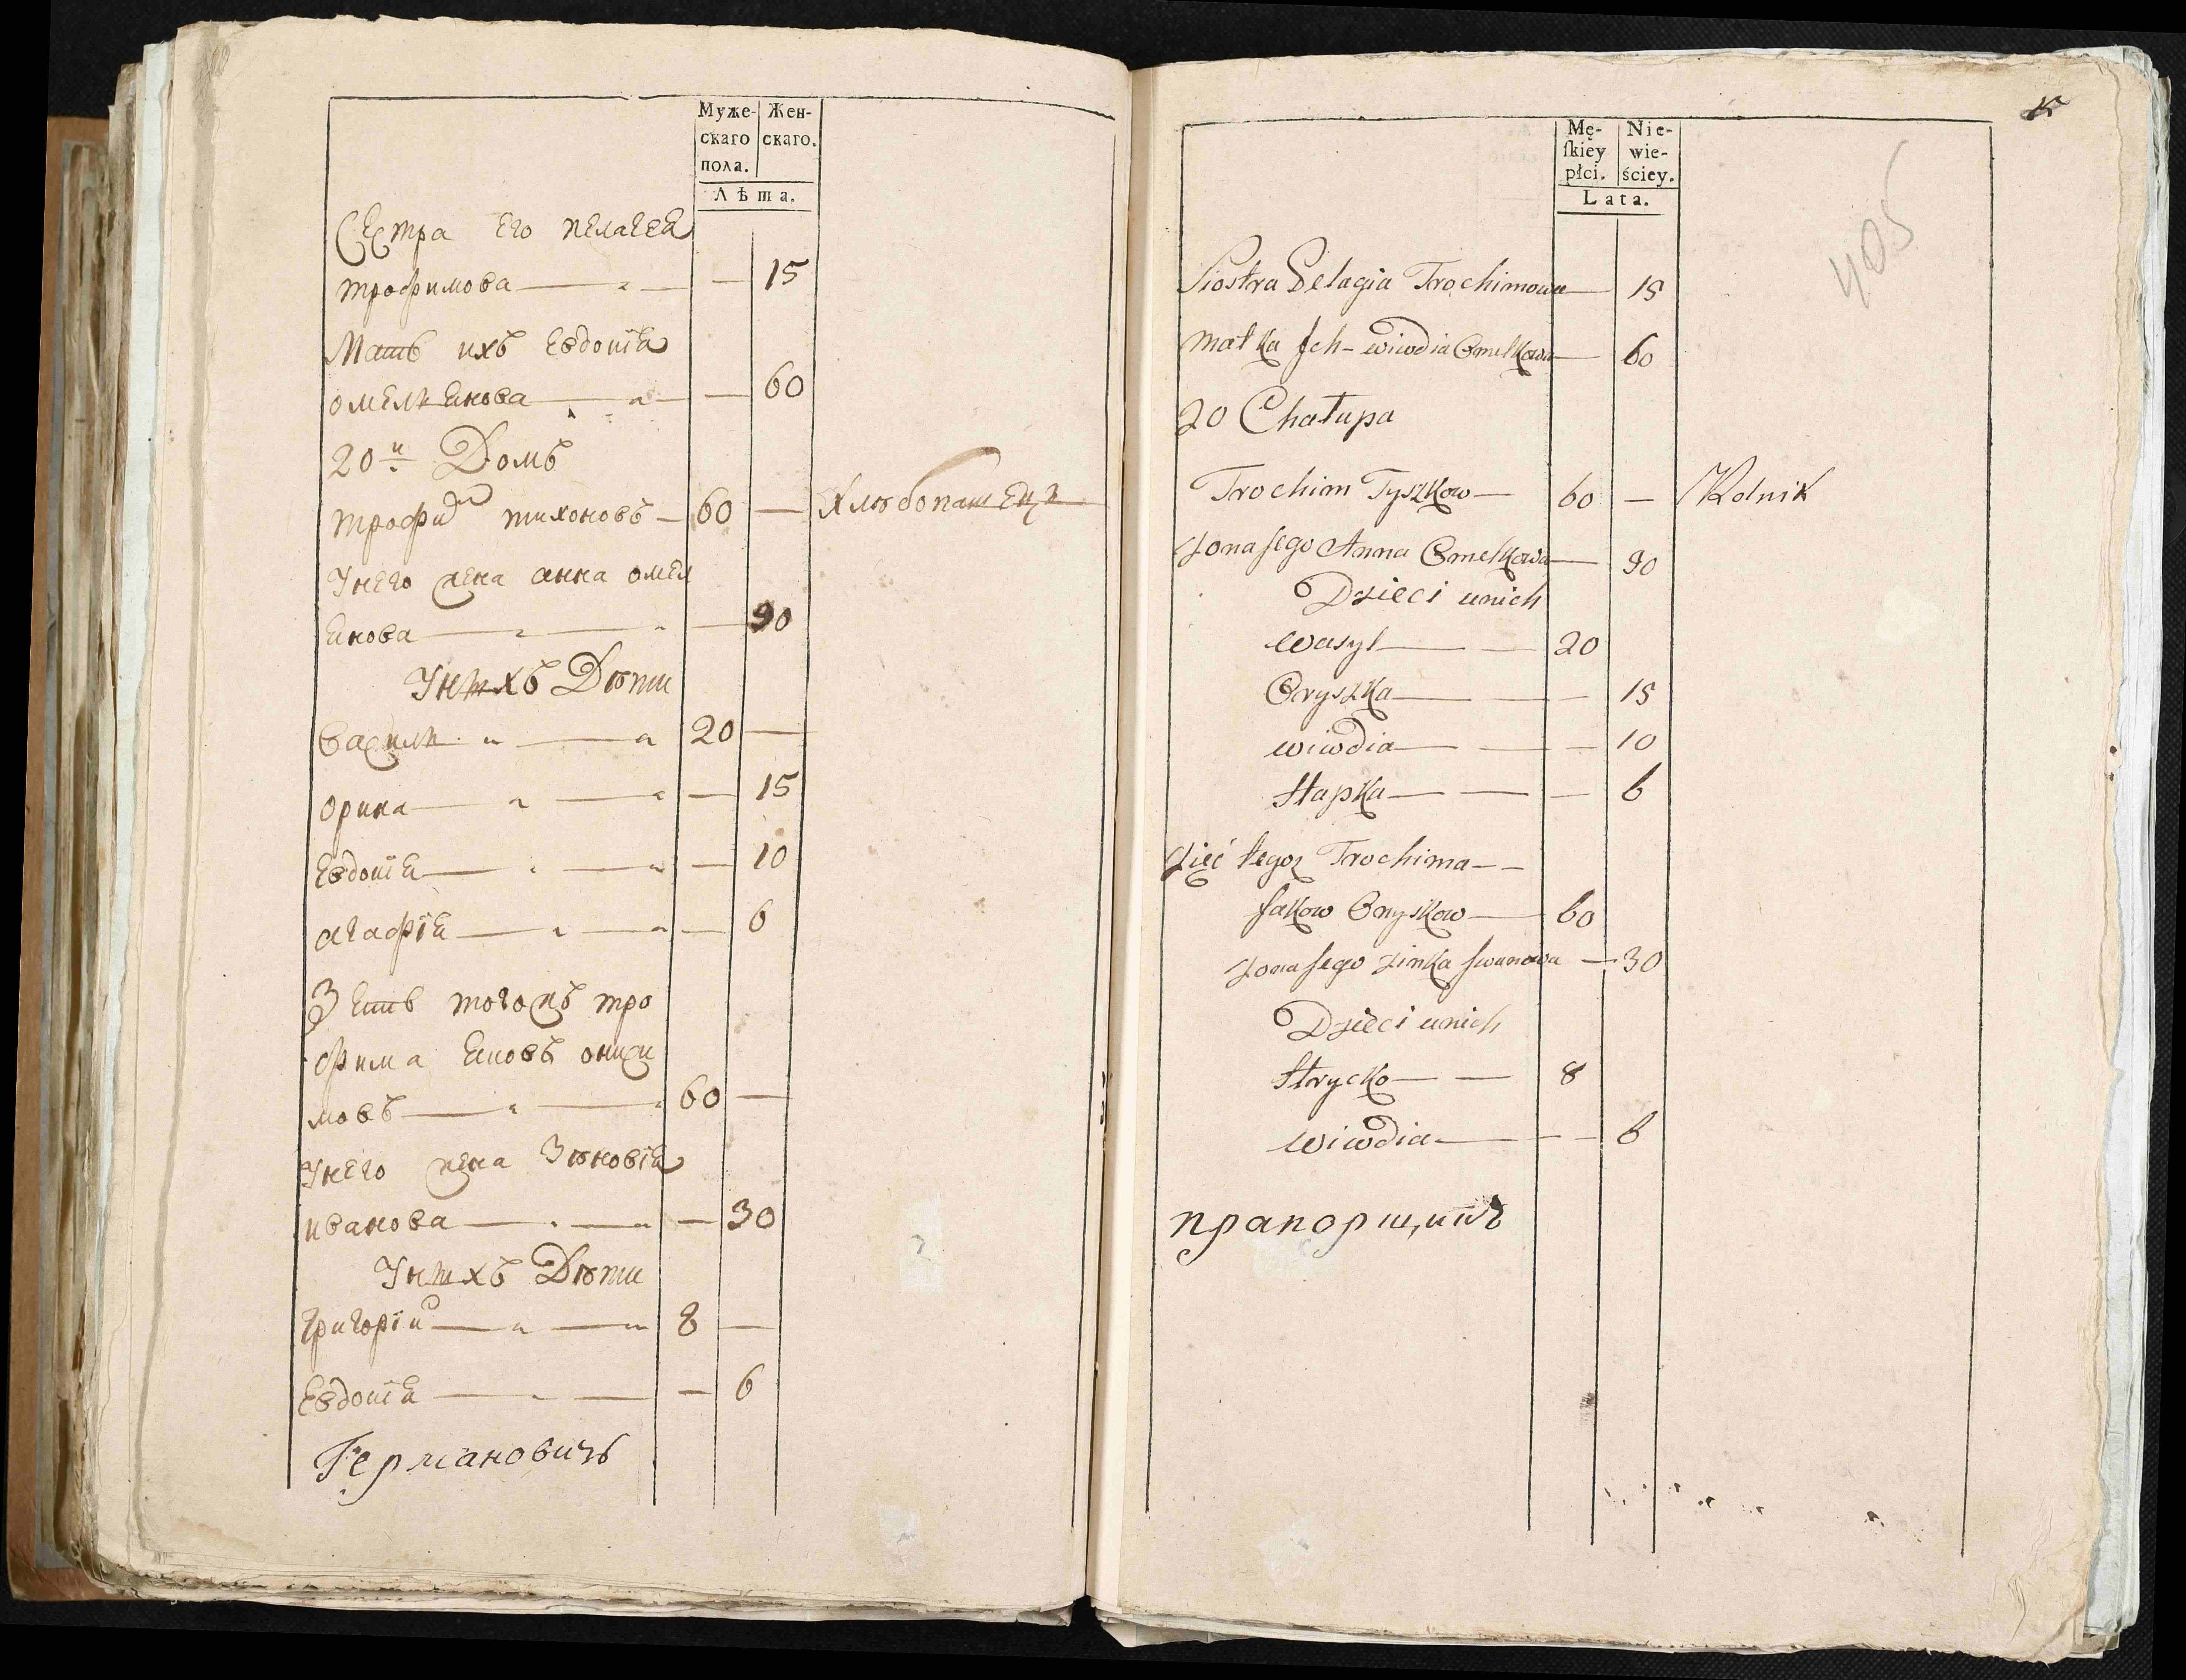 Муже- Жен-
скаго скаго.
пола.
Лѣта.
Сестра его пелагея
трофимова — — 15
Мать ихъ Евдотія
омельянова — — 60
20й Домъ
трофим тихоновъ — 60 — Хлѣбопашецъ
Унего жена анна омел
янова — — 90
Унихъ Дѣти
василь — 20 —
орина — — 15
Евдотія — — 10
агафія — — 6
Зять тогожъ тро
фима яковъ ониси
мовъ — 60 —
Унего жена Зѣновія
иванова — — 30
Унихъ Дѣти
григоріи — 8 —
Евдотія — — 6
Германовичъ
Mę- Nie-
skiey wie-
płci. ściey.
Lata.
405
Siostra Pelagia Trochimowa — 15
matka Jch - wiwdia Omelkowa — 60
20 Chałupa
Trochim Tyszkow — 60 — Rolnik
żona Jego Anna Omelkowa — 90
Dzieci unich
wasyl — — 20
Oryszka — — — 15
wiwdia — — — 10
Hapka — — — 6
zięć tegoż Trochima — —
Jakow Onyskow — 60
żona Jego zinka Jwanowa — 30
Dzieci unich
Hrycko — — 8
wiwdia — — — 6
прапорщикъ